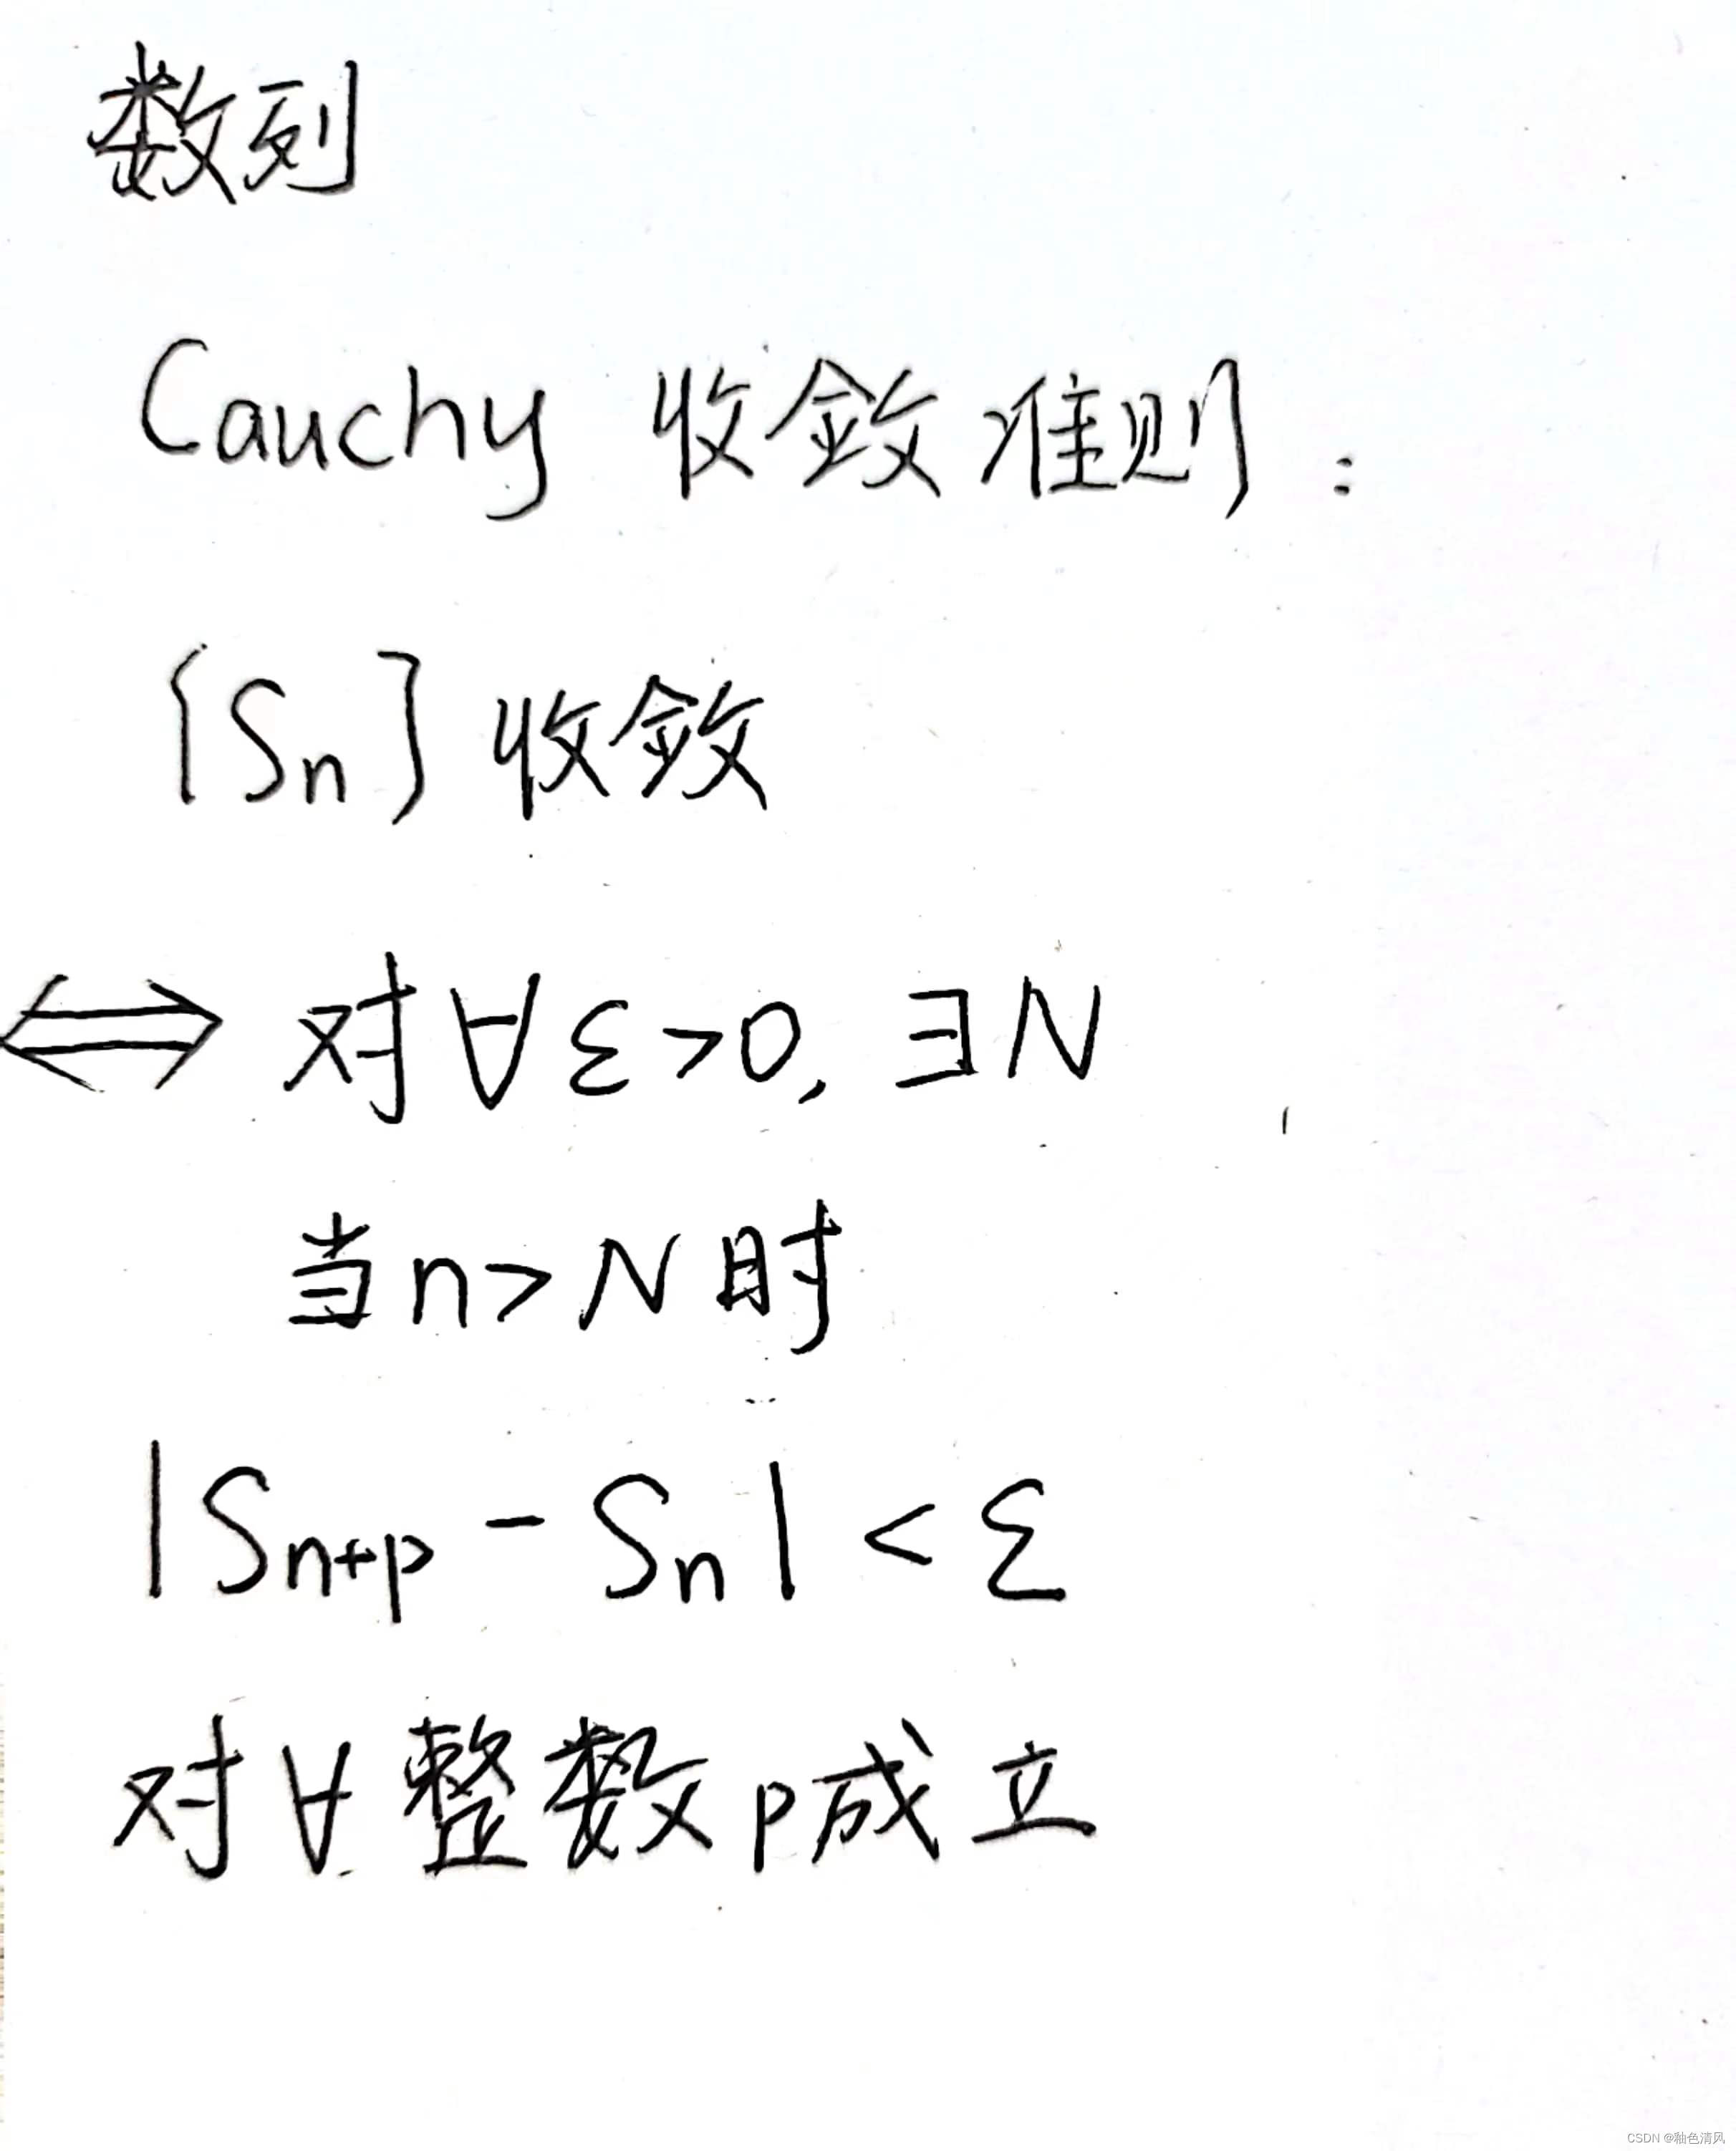 数列
Cauchy 收敛准则:
{Sn} 收敛
⟺ 对∀ε>0, ∃N
当n>N时
|Sn+p - Sn| < ε
对∀整数p成立
CSDN @釉色清风